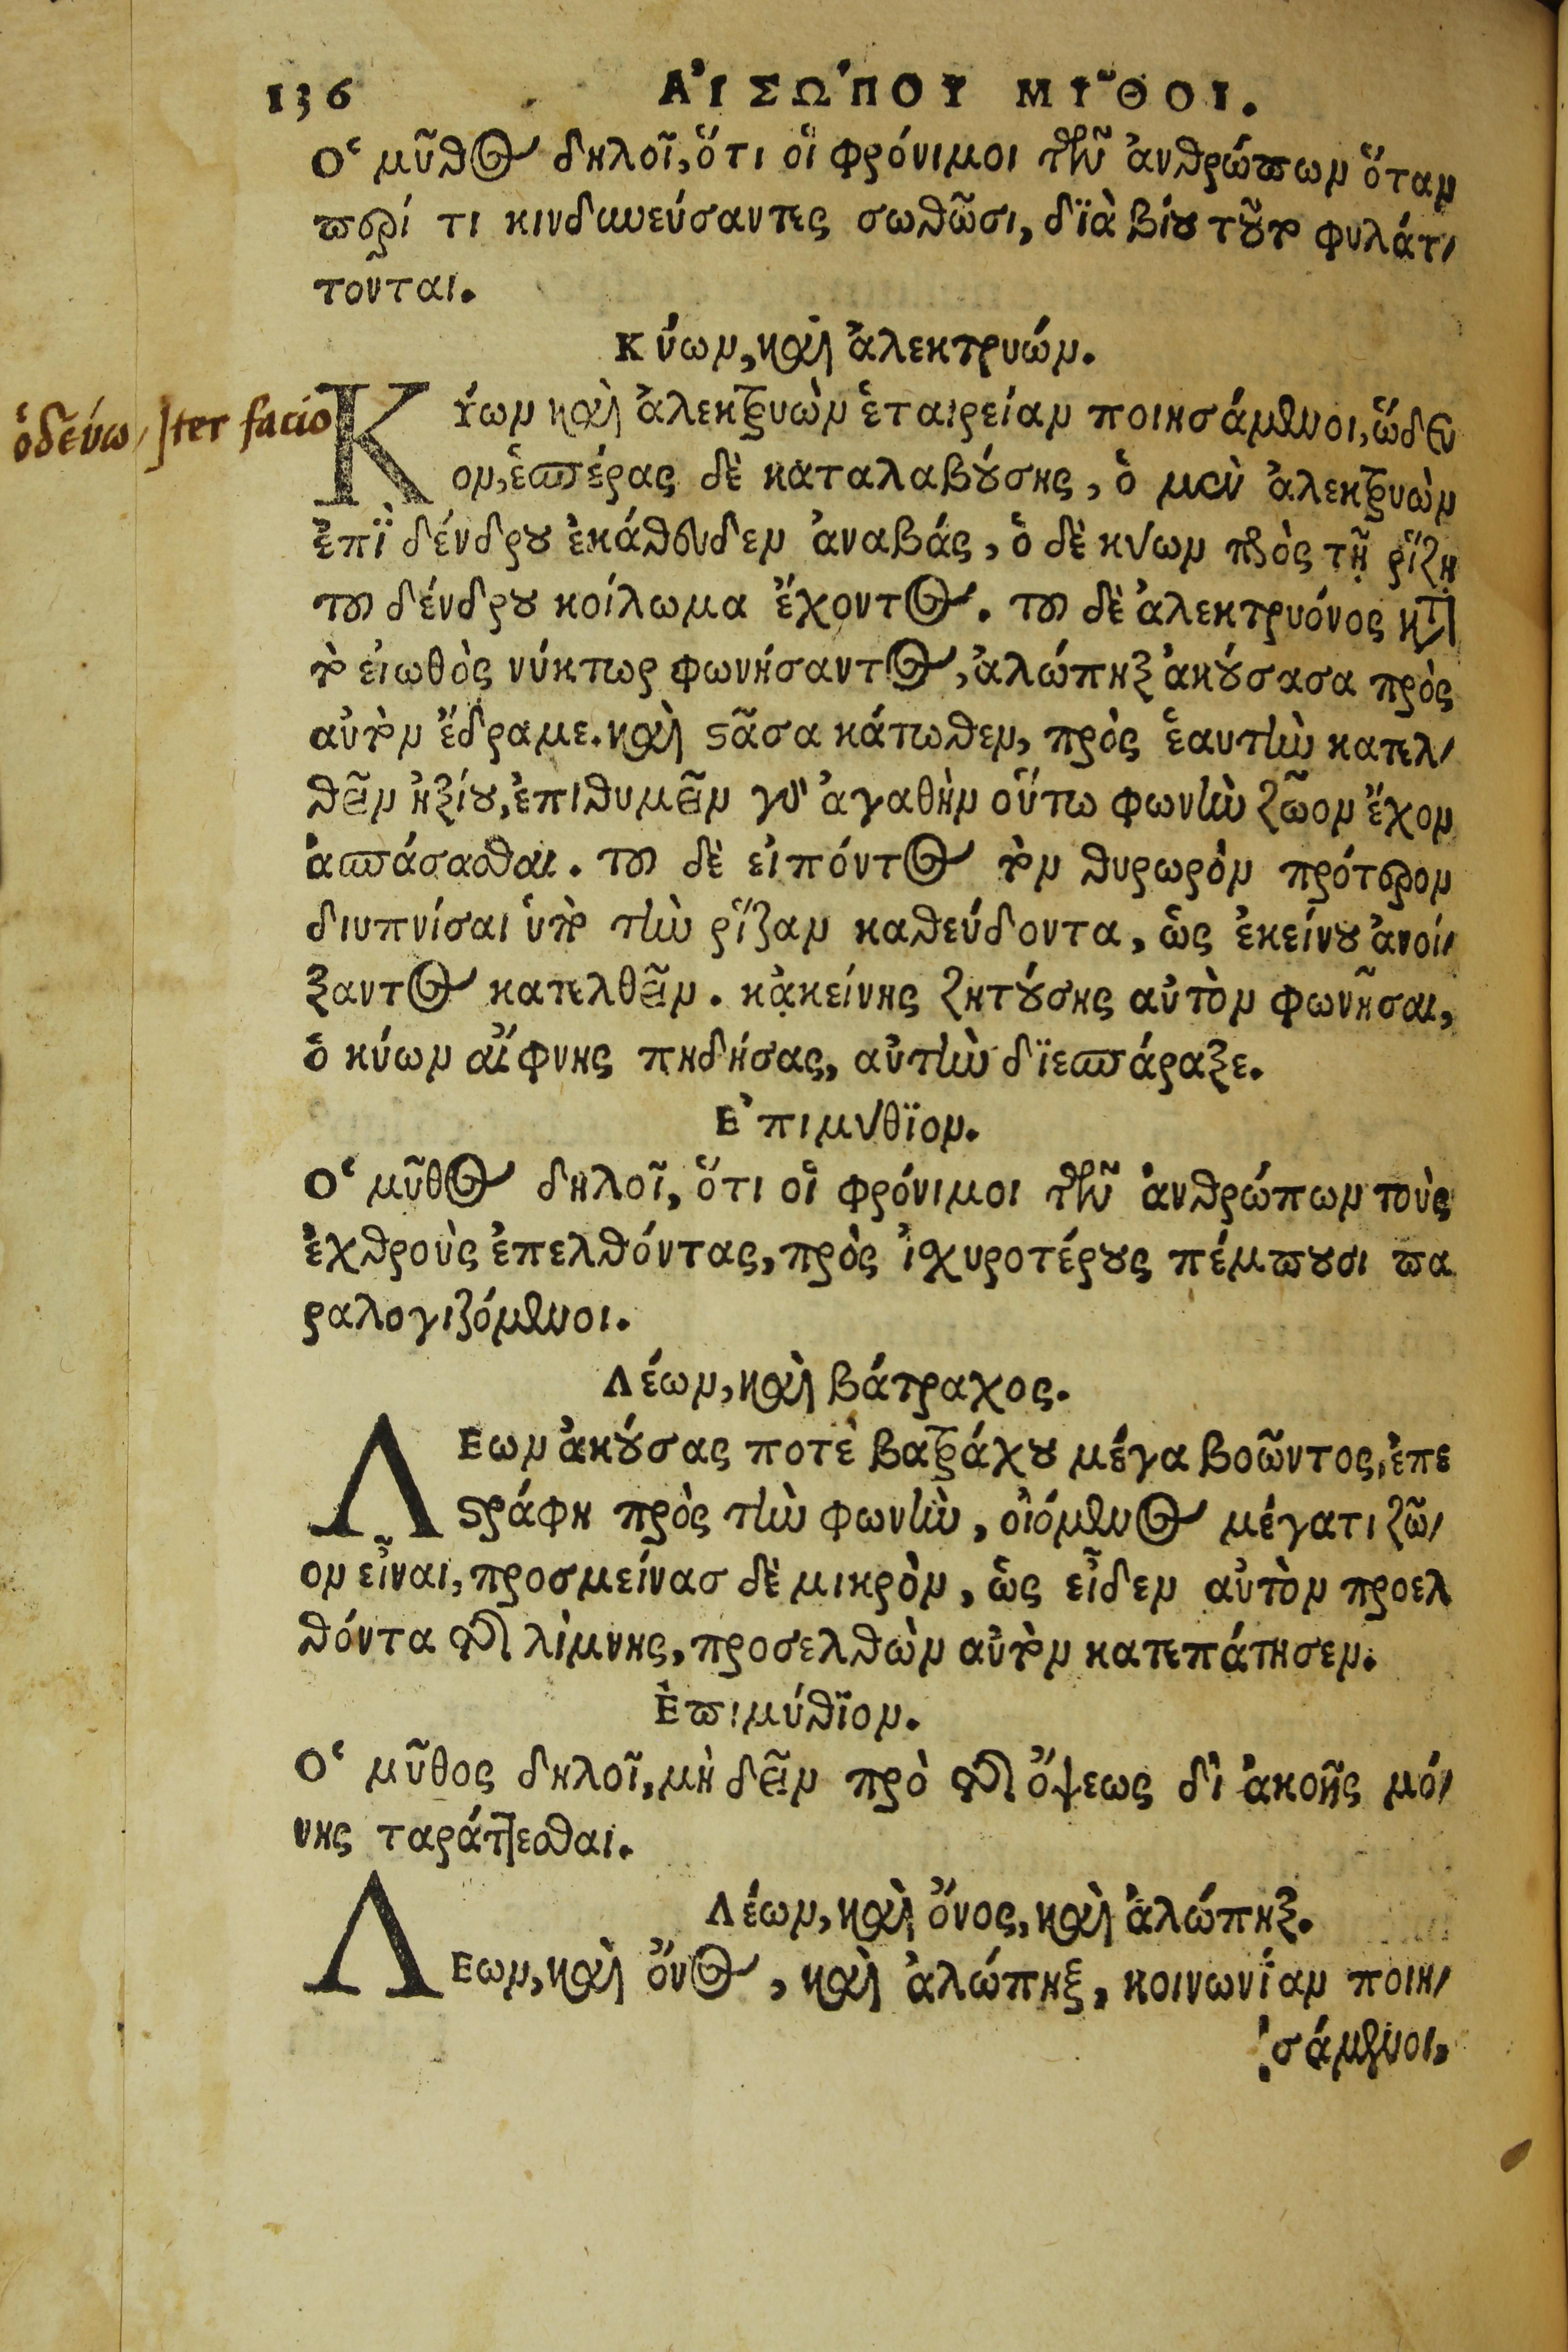 136 ΑἸΣΩΠΟΥ ΜΥ͂ΘΟΙ.
Ὁ μῦθος δηλοῖ, ὅτι οἱ φρόνιμοι τῶν ἀνθρώπων ὅταν
περί τι κινδυνεύσαντες σωθῶσι, διὰ βίου τοῦτο φυλάτ-
τονται.
Κύων, καὶ ἀλεκτρυών.
ὁδεύω, Iter facio
ΚΎων καὶ ἀλεκτρυὼν ἑταιρείαν ποιησάμενοι, ὥδευ
ον, ἑσπέρας δὲ καταλαβούσης, ὁ μὲν ἀλεκτρυὼν
ἐπὶ δένδρου ἐκάθευδεν ἀναβάς, ὁ δὲ κύων πρὸς τῇ ῥίζῃ
τοῦ δένδρου κοίλωμα ἔχοντος. τοῦ δὲ ἀλεκτρυόνος κατὰ
τὸ εἰωθὸς νύκτωρ φωνήσαντος, ἀλώπηξ ἀκούσασα πρὸς
αὐτὸν ἔδραμε. καὶ στᾶσα κάτωθεν, πρὸς ἑαυτὴν κατελ-
θεῖν ἠξίου, ἐπιθυμεῖν γὰρ ἀγαθὴν οὕτω φωνὴν ζῶον ἔχον
ἀσπάσασθαι. τοῦ δὲ εἰπόντος τὸν θυρωρὸν πρότερον
διυπνίσαι ὑπὸ τὴν ῥίζαν καθεύδοντα, ὡς ἐκείνου ἀνοί-
ξαντος κατελθεῖν. κᾀκείνης ζητούσης αὐτὸν φωνῆσαι,
ὁ κύων αἴφνης πηδήσας, αὐτὴν διεσπάραξε.
Ἐπιμύθϊον.
Ὁ μῦθος δηλοῖ, ὅτι οἱ φρόνιμοι τῶν ἀνθρώπων τοὺς
ἐχθροὺς ἐπελθόντας, πρὸς ἰσχυροτέρους πέμπουσι πα
ραλογιζόμενοι.
Λέων, καὶ βάτραχος.
ΛΕων ἀκούσας ποτὲ βατράχου μέγα βοῶντος, ἐπε
στράφη πρὸς τὴν φωνὴν, οἰόμενος μέγατι ζῶ-
ον εἶναι, προσμείνασ δὲ μικρὸν, ὡς εἶδεν αὐτὸν προελ
θόντα τῆς λίμνης, προσελθὼν αὐτὸν κατεπάτησεν.
Ἐπιμύθϊον.
Ὁ μῦθος δηλοῖ, μὴ δεῖν πρὸ τῆς ὄψεως δἰ ἀκοῆς μό-
νης ταράττεσθαι.
Λέων, καὶ ὄνος, καὶ ἀλώπηξ.
ΛΕων, καὶ ὄνος, καὶ ἀλώπηξ, κοινωνίαν ποιη-
σάμενοι,